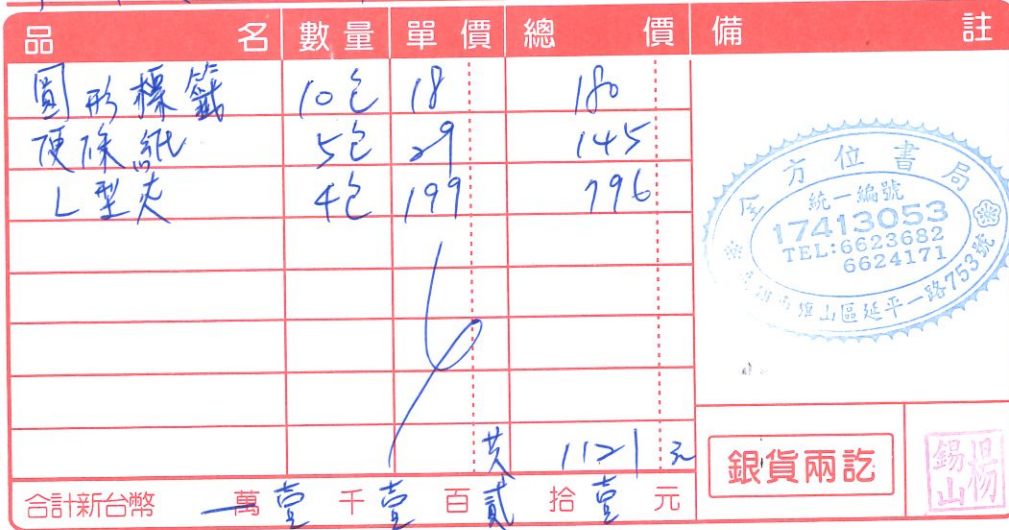 品名 數量 單價 總價 備註
圓形標籤 10包 18 180
硬條紙 5包 29 145
L型夾 4包 199 796
共 1121元
合計新台幣 萬壹千壹百貳拾壹元
全方位書局
統一編號
17413053
TEL:6623682
6624171
山區延平一路753號
銀貨兩訖
楊
錫山